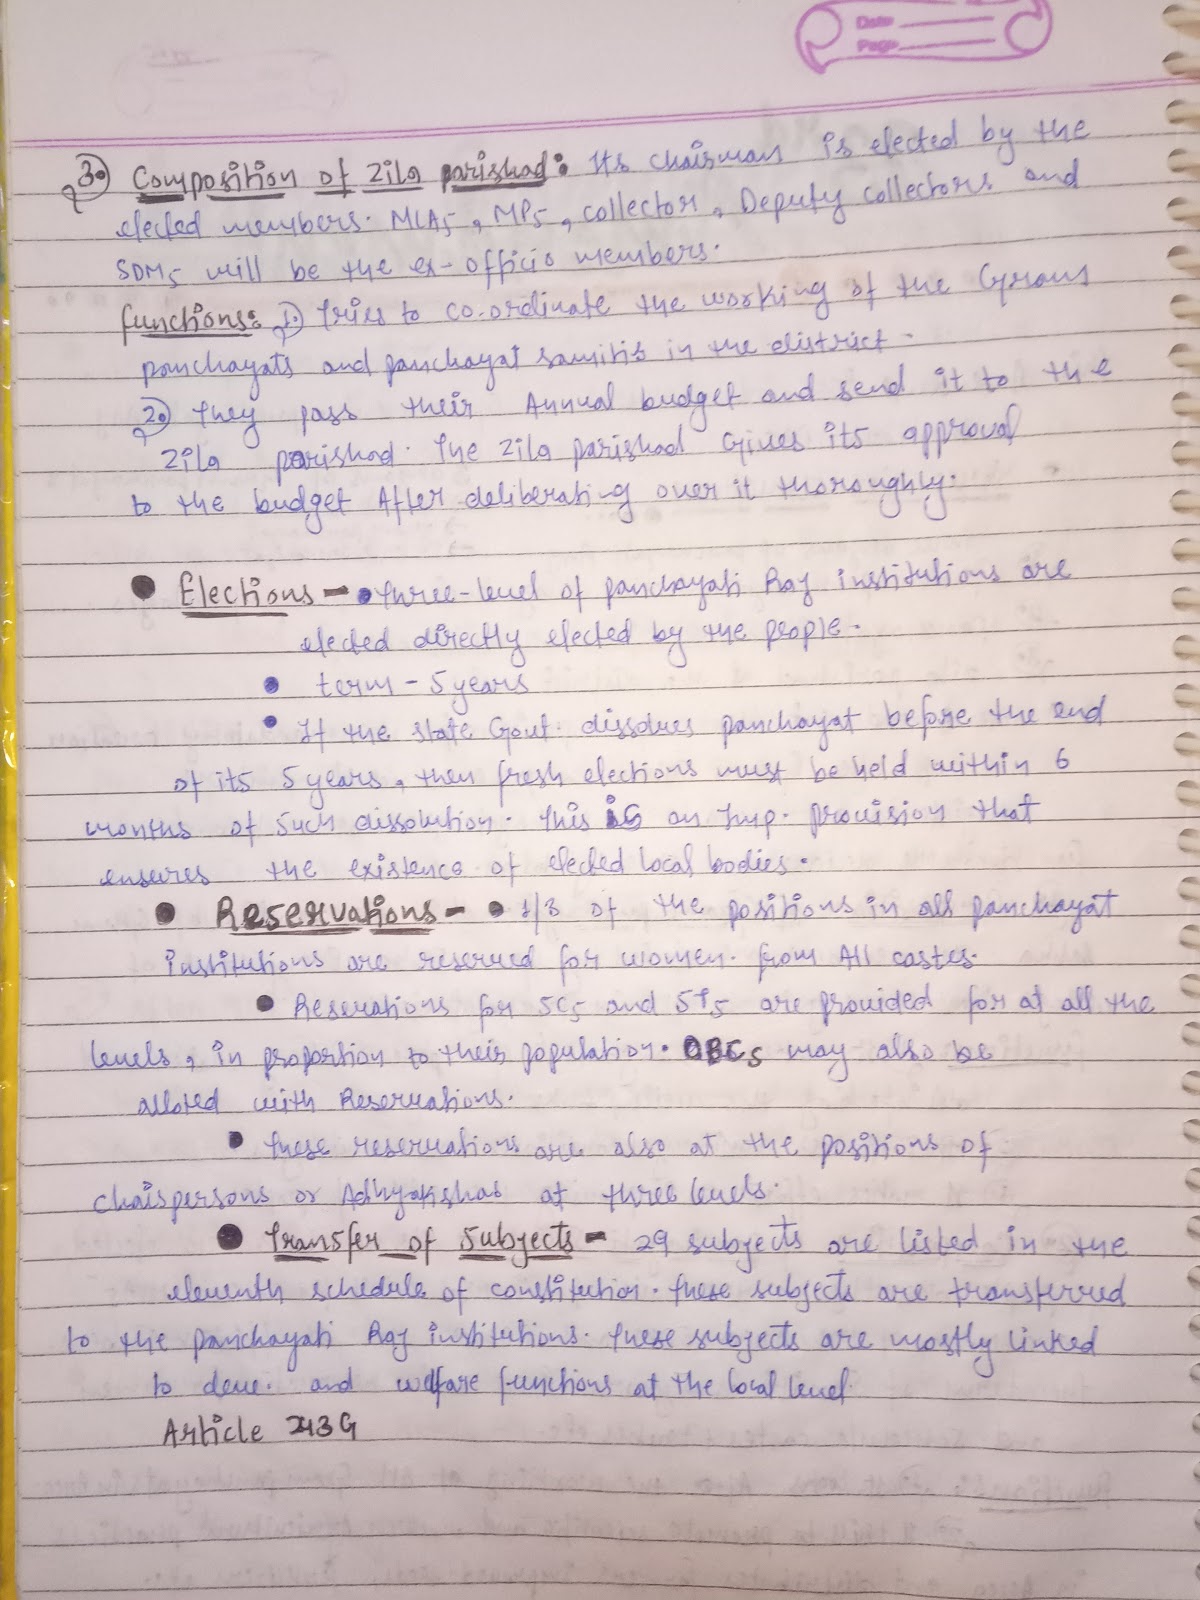 Date
Page
3. Composition of Zila parishad: Its chairman is elected by the
elected members. MLAs, MPs, collector, Deputy collectors and
SDMs will be the ex-officio members.
functions: 1. Tries to co-ordinate the working of the Gram
panchayats and panchayat samitis in the district.
2. They pass their Annual budget and send it to the
Zila parishad. The Zila parishad gives its approval
to the budget After deliberating over it thoroughly.
• Elections - • three-level of panchayati Raj institutions are
elected directly elected by the people.
• term - 5 years
• If the state Govt. dissolves panchayat before the end
of its 5 years, then fresh elections must be held within 6
months of such dissolution. This is an Imp. provision that
ensures the existence of elected local bodies.
• Reservations - • 1/3 of the positions in all panchayat
institutions are reserved for women. from All castes.
• Reservations for SCs and STs are provided for at all the
levels, in proportion to their population. OBCs may also be
alloted with Reservations.
• These reservations are also at the positions of
chairpersons or Adhyakshas at three levels.
• Transfer of Subjects - 29 subjects are listed in the
eleventh schedule of constitution. These subjects are transferred
to the panchayati Raj institutions. These subjects are mostly linked
to deve. and welfare functions at the local level.
Article 243G